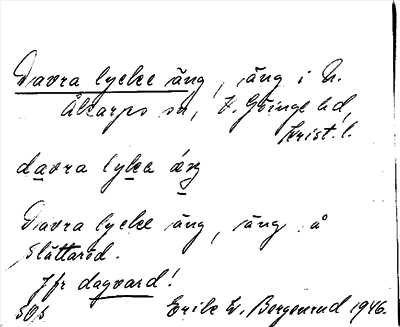 Davra lycke äng, äng i N.
Åkarps sn, V. Göinge hd,
Krist. l.
davra lyke áŋ
Davra lycke äng, äng å
Slättaröd.
Jfr dagvard!
SOS Erik W. Bergenrud 1946.